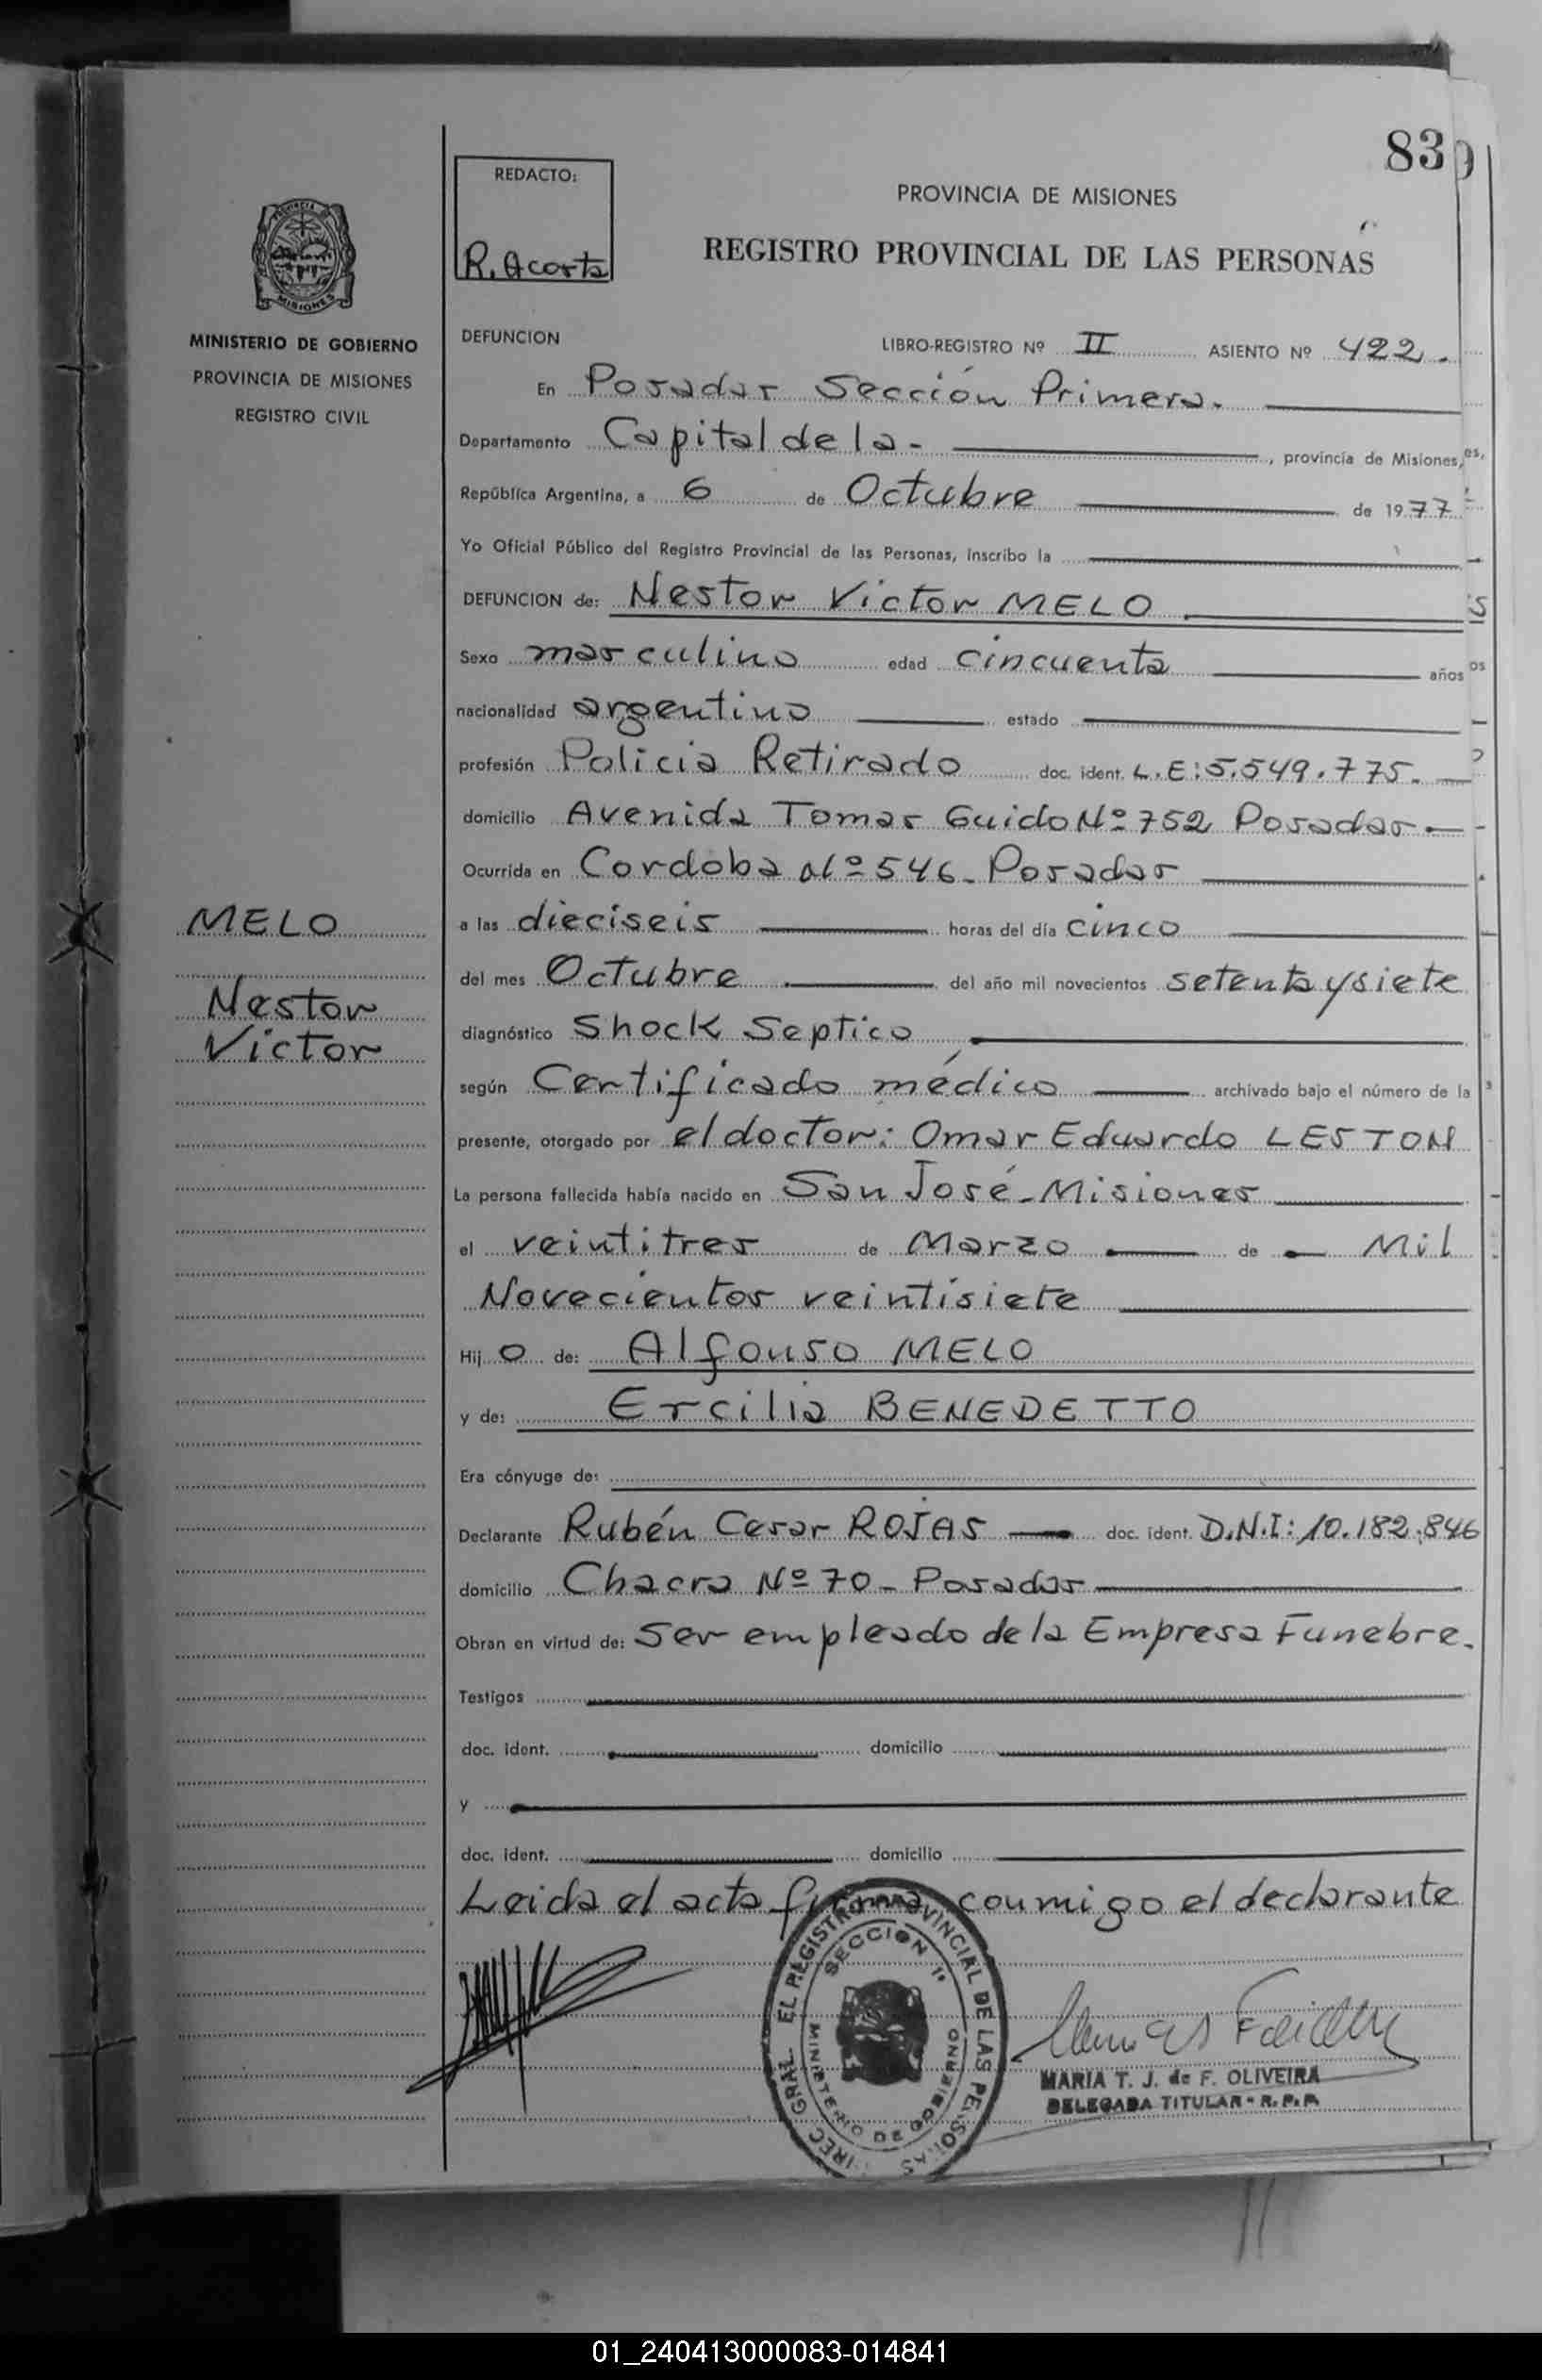 83
REDACTO:
R. Acosta
PROVINCIA DE MISIONES
REGISTRO PROVINCIAL DE LAS PERSONAS
MISIONES
MINISTERIO DE GOBIERNO
PROVINCIA DE MISIONES
REGISTRO CIVIL
DEFUNCION LIBRO-REGISTRO Nº II ASIENTO Nº 422.
En Posadas Sección Primera.
Departamento Capital de la - , provincia de Misiones,
República Argentina, a 6 de Octubre de 1977
Yo Oficial Público del Registro Provincial de las Personas, inscribo la
DEFUNCION de: Nestor Victor MELO
Sexo masculino edad cincuenta años
nacionalidad argentino estado
profesión Policia Retirado doc. ident. L.E: 5.549.775.
domicilio Avenida Tomas Guido Nº 752 Posadas
Ocurrida en Cordoba Nº 546 - Posadas
MELO
Nestor
Victor
a las dieciseis horas del día cinco
del mes Octubre del año mil novecientos setenta y siete
diagnóstico Shock Septico
según Certificado médico archivado bajo el número de la
presente, otorgado por el doctor: Omar Eduardo LESTON
La persona fallecida había nacido en San José - Misiones
el veintitres de Marzo de Mil
Novecientos veintisiete
Hijo de: Alfonso MELO
y de: Ercilia BENEDETTO
Era cónyuge de:
Declarante Rubén Cesar ROJAS doc. ident. D.N.I: 10.182.846
domicilio Chacra Nº 70 - Posadas
Obran en virtud de: Ser empleado de la Empresa Funebre.
Testigos
doc. ident. domicilio
y
doc. ident. domicilio
Leida el acta firma conmigo el declarante
GRAL. EL REGISTRO PROVINCIAL DE LAS PERSONAS
SECCION 1ª
MINISTERIO DE GOBIERNO
MARIA T. J. de F. OLIVEIRA
DELEGADA TITULAR - R. P. P.
01_240413000083-014841